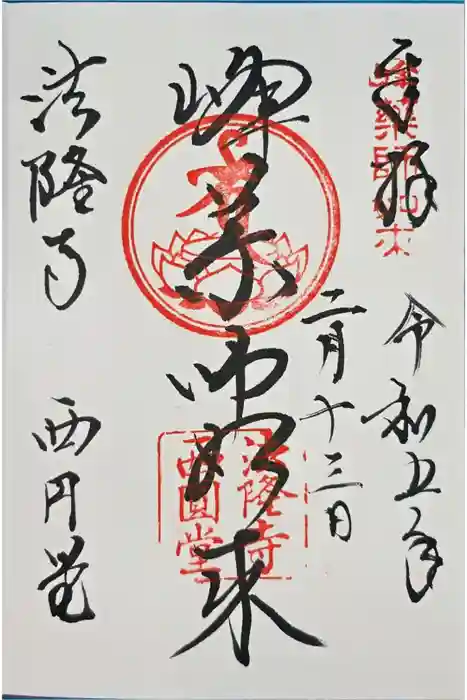 奉拝
令和五年
二月十三日
峰薬師如来
法隆寺
西円堂
峯薬師如来
法隆寺
西圓堂